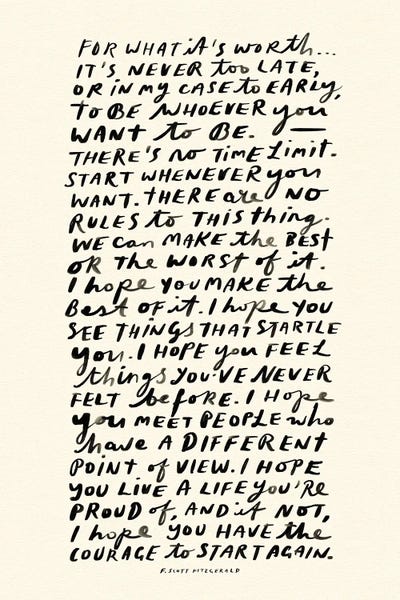 FOR WHAT iT'S WORth...
IT'S NEVER too LATE,
OR iN MY CASE to EARLY,
To BE WHOEVER you
WANT to BE. —
THERE'S no TiME Limit.
START WHENEVER you
WANT. THERE are NO
RULES to THIS thing.
WE Can MAKE the BEST
oR The WORST of it.
I hope YOU MAKE the
Best OF it. I hope YOU
SEE THINGS THAT STARTLE
You. I HOPE you FEEL
things YOU'VE NEVER
FELT beFORE. I Hope
you MEET PEOPLE who
have A DIFFERENT
POINT of VIEW. I HOPE
YOU LIVE A LIFE you'RE
PROUD of, AND if NOT,
I hope YOU HAVE the
COURAGE to START AGAIN.
F. SCOTT FITZGERALD